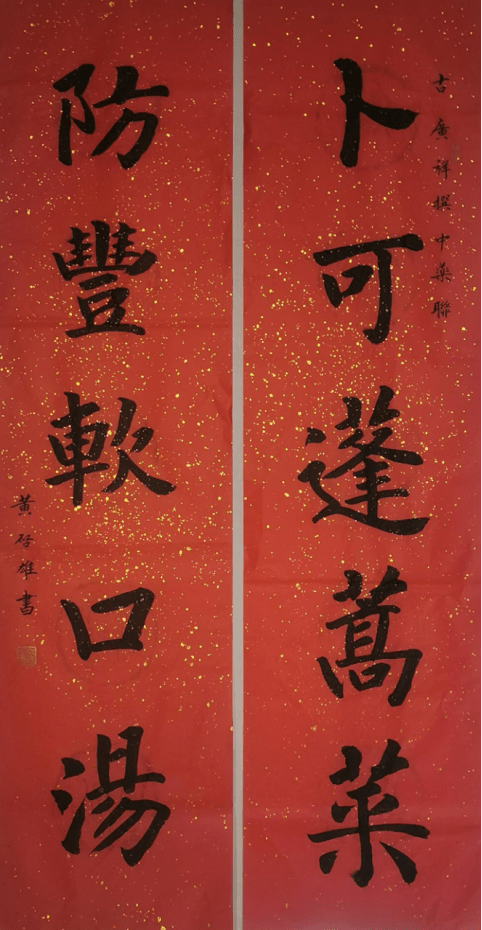 古廣祥撰中藥聯
卜可蓬蒿菜
防豐軟口湯
黃启雄書